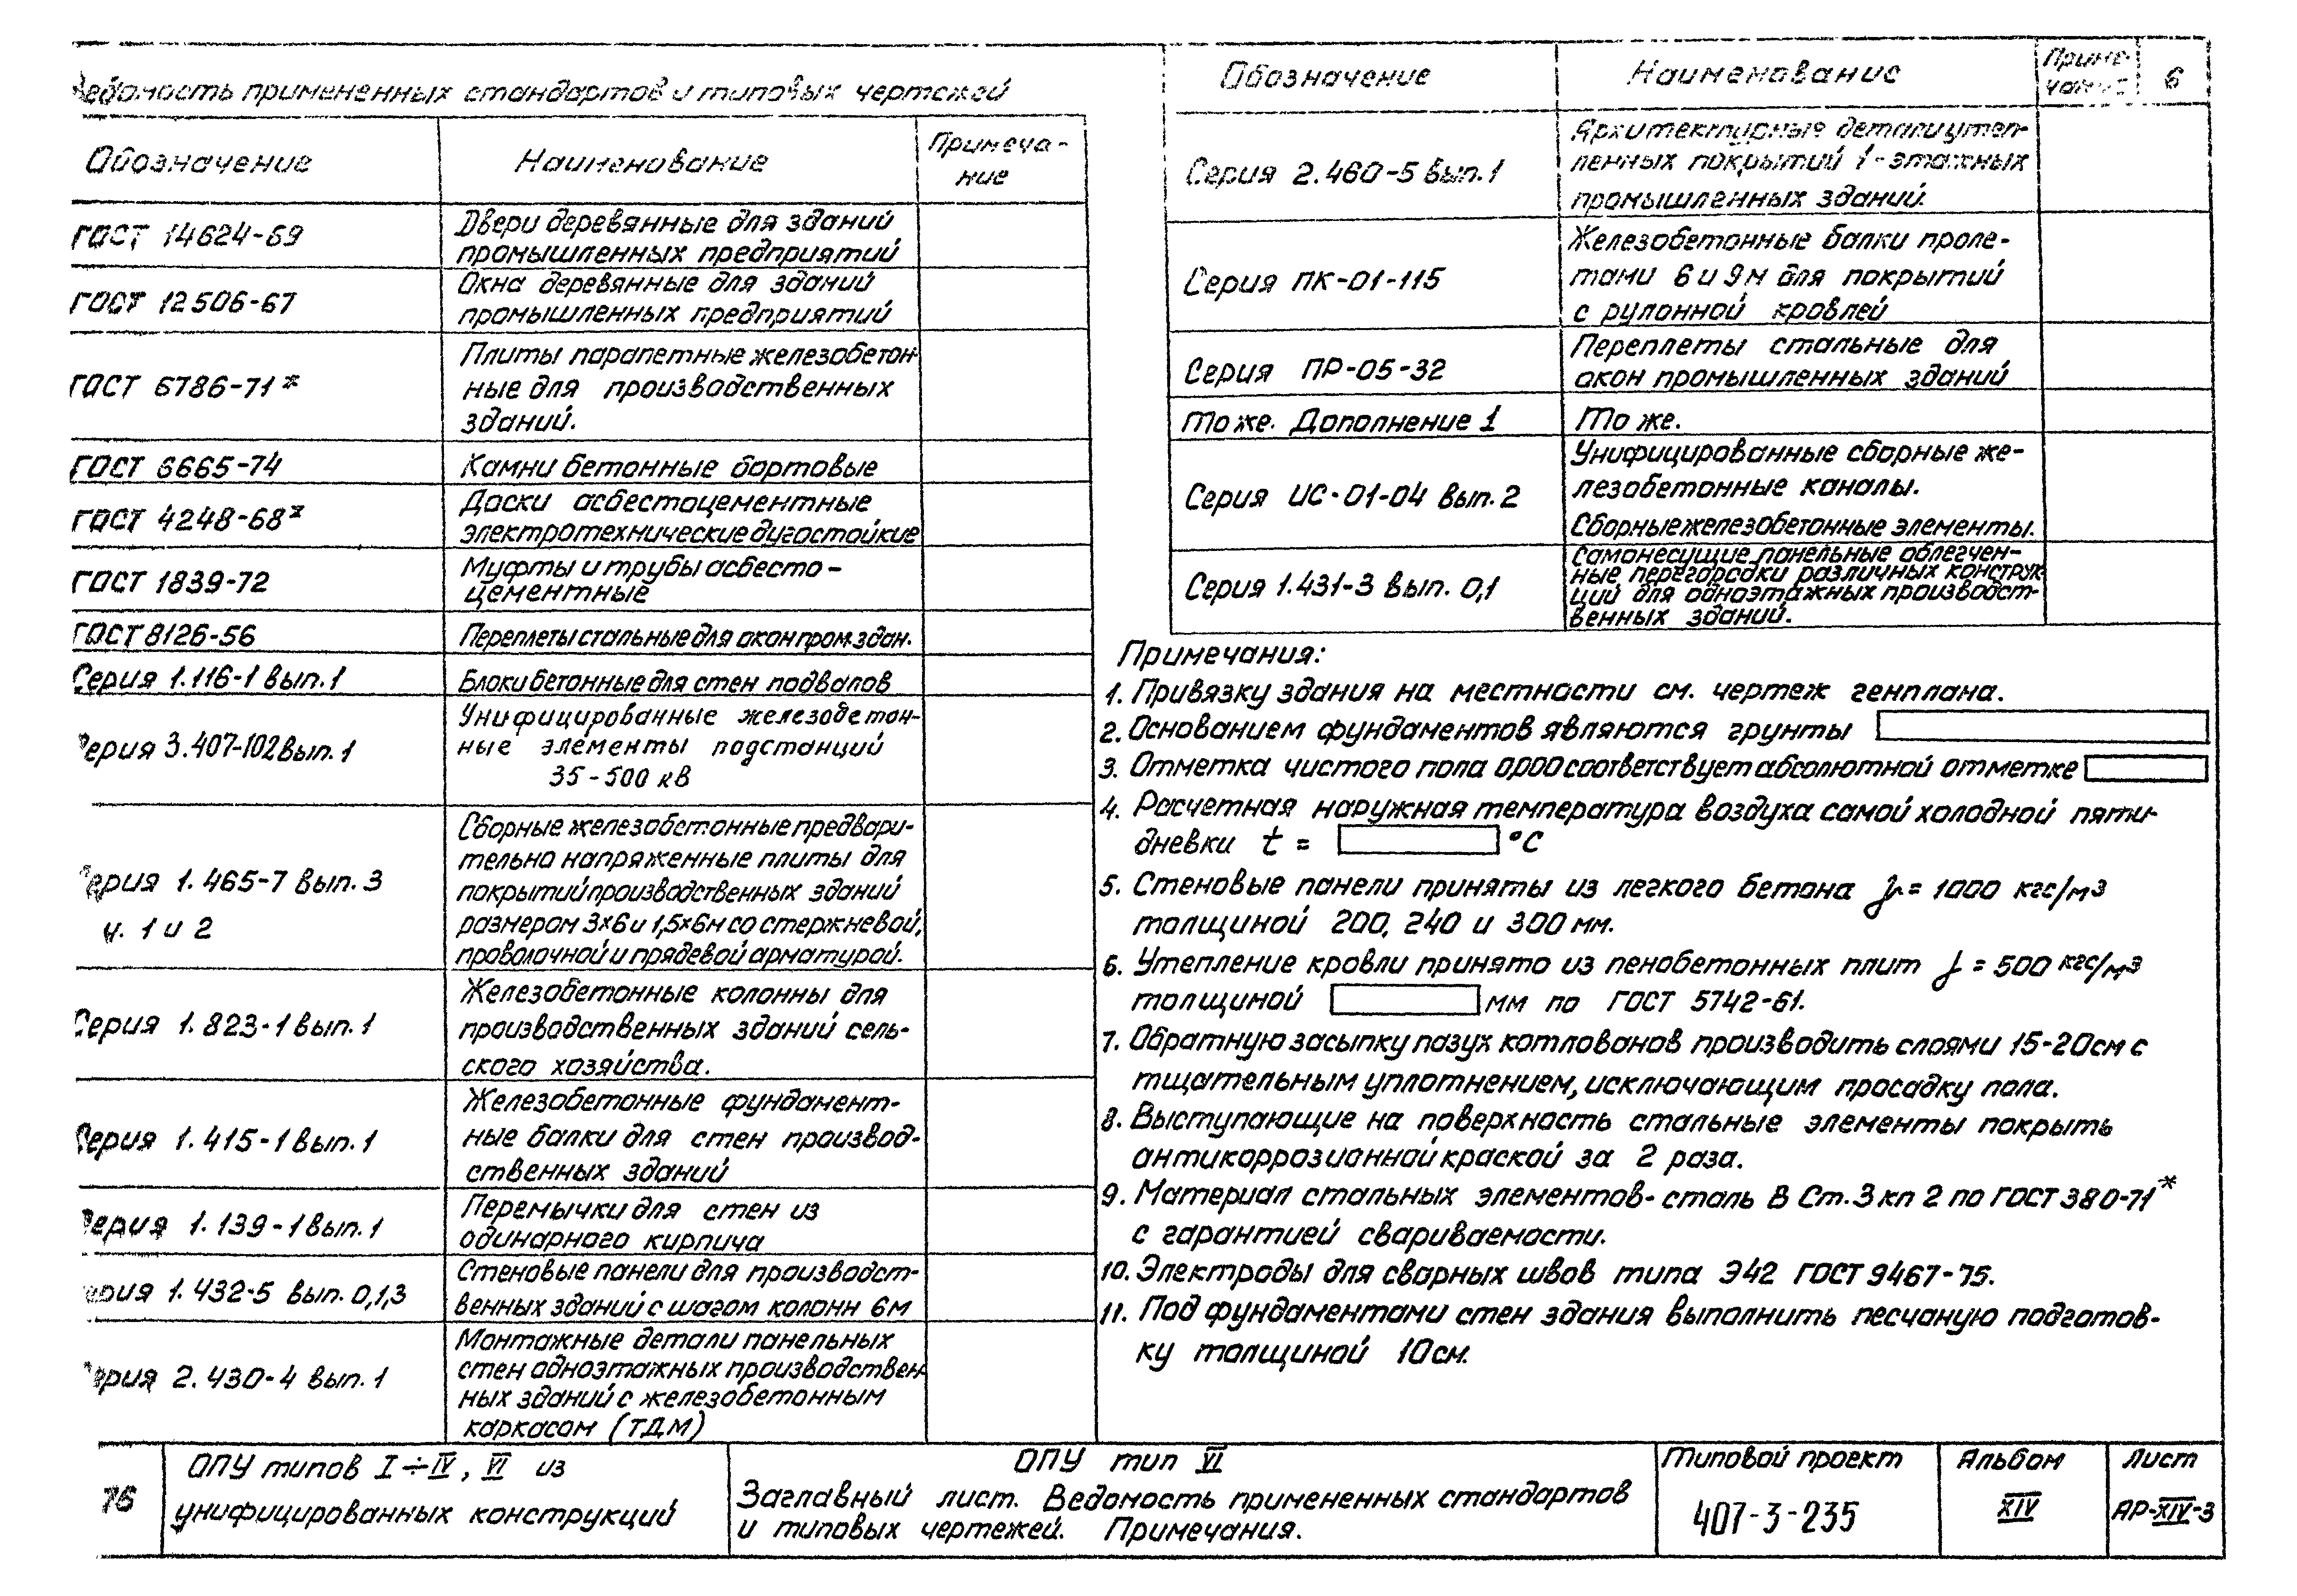 Ведомость примененных стандартов и типовых чертежей
Обозначение
Наименование
Примеча-
ние
ГОСТ 14624-69
Двери деревянные для зданий
промышленных предприятий
ГОСТ 12506-67
Окна деревянные для зданий
промышленных предприятий
ГОСТ 6786-71*
Плиты парапетные железобетон-
ные для производственных
зданий.
ГОСТ 6665-74
Камни бетонные бортовые
ГОСТ 4248-68*
Доски асбестоцементные
электротехнические дугостойкие
ГОСТ 1839-72
Муфты и трубы асбесто-
цементные
ГОСТ 8126-56
Переплеты стальные для окон пром.здан.
Серия 1.116-1 вып.1
Блоки бетонные для стен подвалов
Серия 3.407-102 вып.1
Унифицированные железобетон-
ные элементы подстанций
35-500 кв
Серия 1.465-7 вып.3
ч. 1 и 2
Сборные железобетонные предвари-
тельно напряженные плиты для
покрытий производственных зданий
размером 3×6 и 1,5×6м со стержневой,
проволочной и прядевой арматурой.
Серия 1.823-1 вып.1
Железобетонные колонны для
производственных зданий сель-
ского хозяйства.
Серия 1.415-1 вып.1
Железобетонные фундамент-
ные балки для стен производ-
ственных зданий
Серия 1.139-1 вып.1
Перемычки для стен из
одинарного кирпича
Серия 1.432-5 вып.0,1,3
Стеновые панели для производст-
венных зданий с шагом колонн 6м
Серия 2.430-4 вып.1
Монтажные детали панельных
стен одноэтажных производствен-
ных зданий с железобетонным
каркасом (ТДМ)
Обозначение
Наименование
Приме-
чание
6
Серия 2.460-5 вып.1
Архитектурные детали утеп-
ленных покрытий 1-этажных
промышленных зданий.
Серия ПК-01-115
Железобетонные балки проле-
тами 6 и 9м для покрытий
с рулонной кровлей
Серия ПР-05-32
Переплеты стальные для
окон промышленных зданий
То же. Дополнение 1
То же.
Серия ИС-01-04 вып.2
Унифицированные сборные же-
лезобетонные каналы.
Сборные железобетонные элементы.
Серия 1.431-3 вып. 0,1
Самонесущие панельные облегчен-
ные перегородки различных конструк-
ций для одноэтажных производст-
венных зданий.
Примечания:
1. Привязку здания на местности см. чертеж генплана.
2. Основанием фундаментов являются грунты
3. Отметка чистого пола 0,000 соответствует абсолютной отметке
4. Расчетная наружная температура воздуха самой холодной пяти-
дневки t = °С
5. Стеновые панели приняты из легкого бетона γ = 1000 кгс/м3
толщиной 200, 240 и 300 мм.
6. Утепление кровли принято из пенобетонных плит γ = 500 кгс/м3
толщиной мм по ГОСТ 5742-61.
7. Обратную засыпку пазух котлованов производить слоями 15-20см с
тщательным уплотнением, исключающим просадку пола.
8. Выступающие на поверхность стальные элементы покрыть
антикоррозионной краской за 2 раза.
9. Материал стальных элементов-сталь В Ст.3 кп 2 по ГОСТ 380-71*
с гарантией свариваемости.
10. Электроды для сварных швов типа Э42 ГОСТ 9467-75.
11. Под фундаментами стен здания выполнить песчаную подготов-
ку толщиной 10см.
76
ОПУ типов I÷IV, VI из
унифицированных конструкций
ОПУ тип VI
Заглавный лист. Ведомость примененных стандартов
и типовых чертежей. Примечания.
Типовой проект
407-3-235
Альбом
XIV
Лист
АР-XIV-3